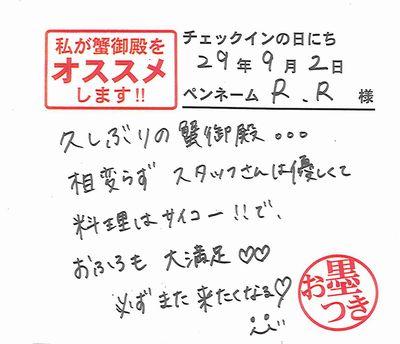 私が蟹御殿を
オススメ
します!!
チェックインの日にち
29年9月2日
ペンネーム R.R 様
久しぶりの蟹御殿...
相変らず スタッフさんは優しくて
料理はサイコー!!で、
おふろも 大満足♡♡
必ずまた来たくなる♡
お墨つき